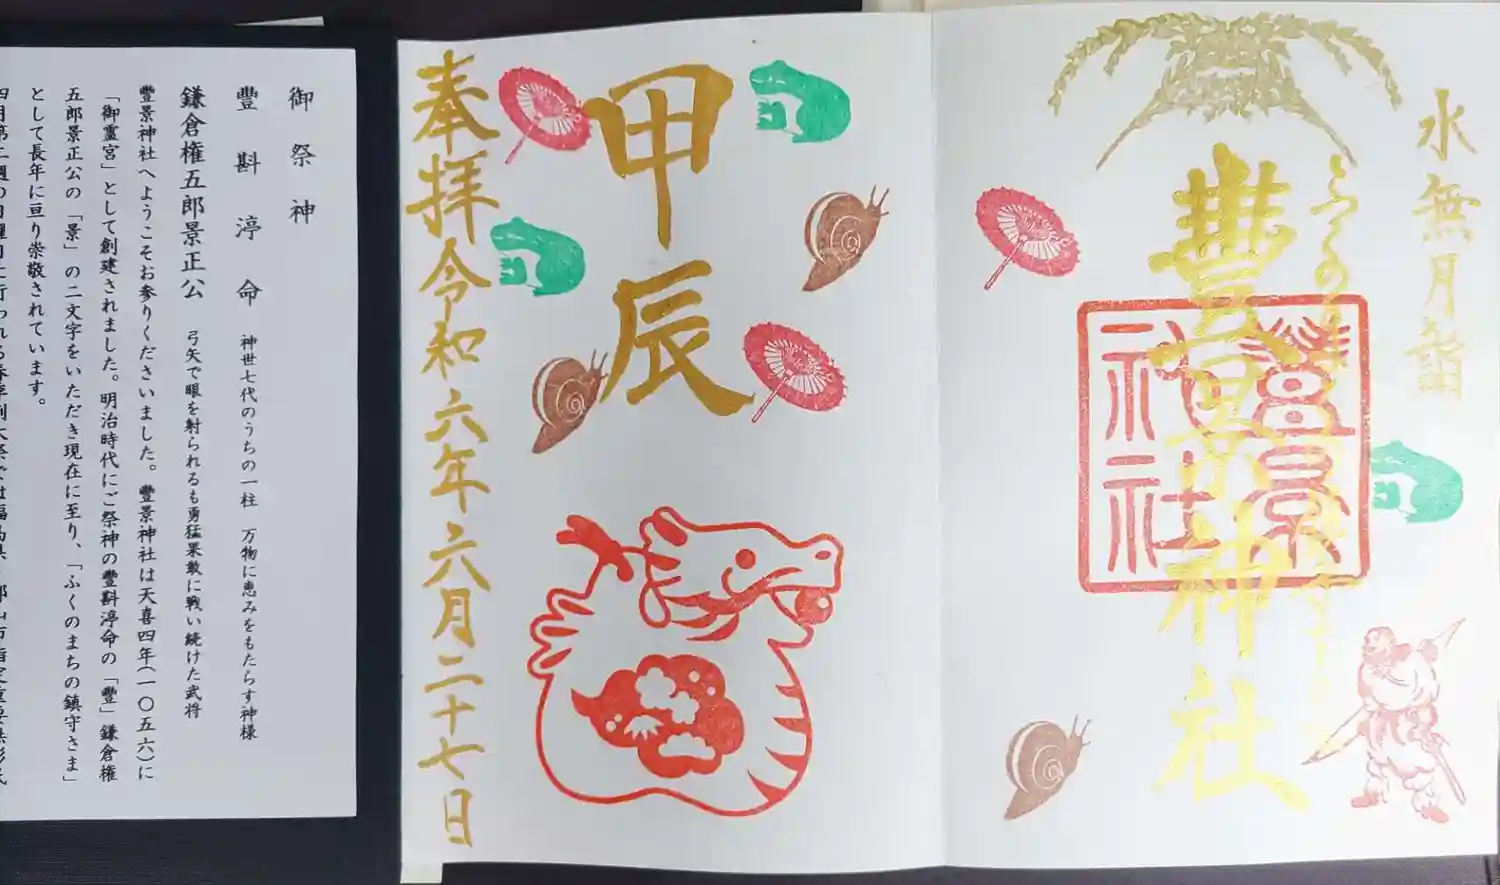 水無月詣
豐景神社
豐景
神社
甲辰
奉拝令和六年六月二十七日
御祭神
豐斟渟命 神世七代のうちの一柱 万物に恵みをもたらす神様
鎌倉権五郎景正公 弓矢で眼を射られるも勇猛果敢に戦い続けた武将
豐景神社へようこそお参りくださいました。豐景神社は天喜四年(一〇五六)に
「御霊宮」として創建されました。明治時代にご祭神の豐斟渟命の「豐」鎌倉権
五郎景正公の「景」の二文字をいただき現在に至り、「ふくのまちの鎮守さま」
として長年に亘り崇敬されています。